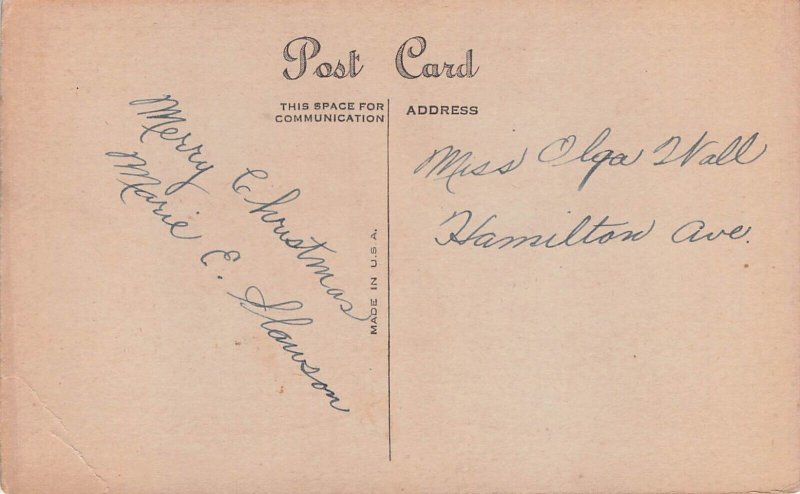 Post Card
THIS SPACE FOR
COMMUNICATION
ADDRESS
Merry Christmas
Marie E. Slawson
MADE IN U.S.A.
Miss Olga Wall
Hamilton Ave.